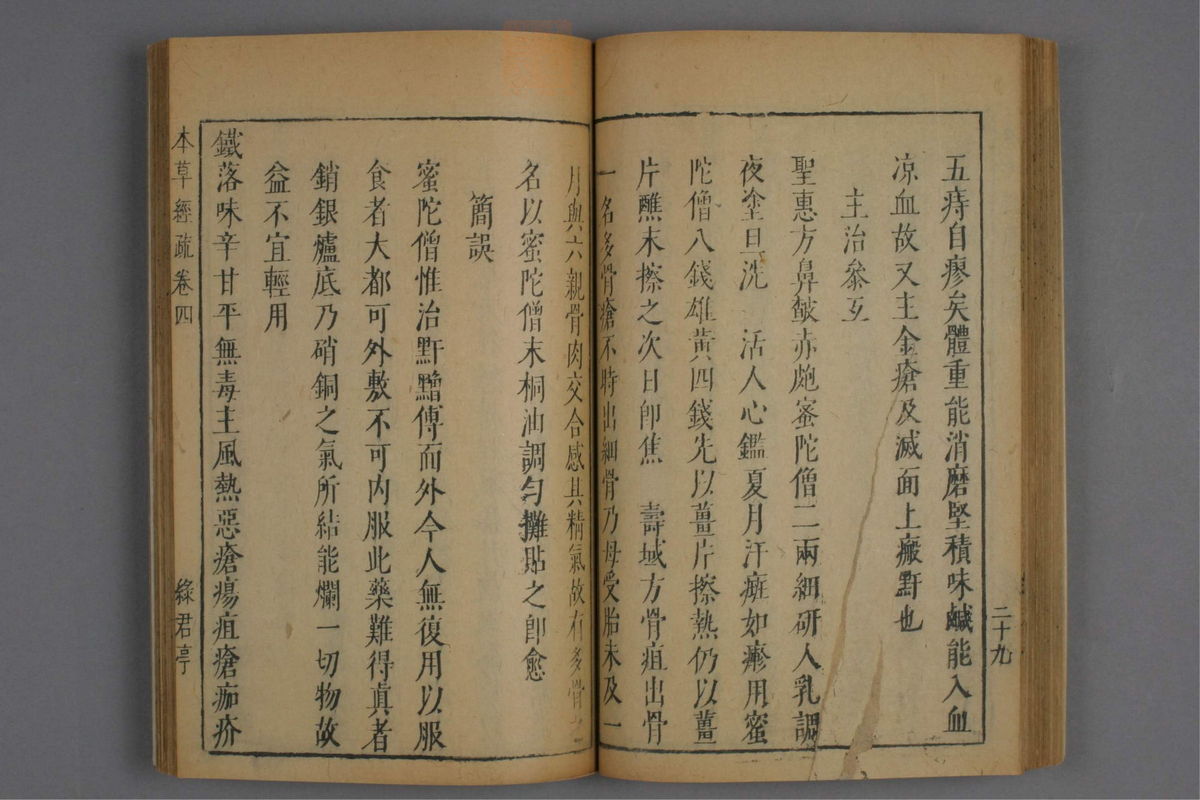 五痔自瘳矣體重能消磨堅積味鹹能入血
凉血故又主金瘡及滅面上瘢䵟也
主治叅互
聖惠方鼻皶赤皰蜜陀僧二兩細研人乳調
夜塗旦洗 活人心鑑夏月汗癍如瘮用蜜
陀僧八錢雄黃四錢先以薑片擦熱仍以薑
片蘸末擦之次日卽焦 壽域方骨疽出骨
一名多骨瘡不時出細骨乃母受胎未及一
月與六親骨肉交合感其精氣故有多骨之
二十九
名以蜜陀僧末桐油調勻攤貼之卽愈
簡誤
蜜陀僧惟治䵟䵴傅面外今人無復用以服
食者大都可外敷不可內服此藥難得眞者
銷銀爐底乃硝銅之氣所結能爛一切物故
益不宜輕用
鐵落味辛甘平無毒主風熱惡瘡瘍疽瘡痂疥
本草經疏卷四
綠君亭